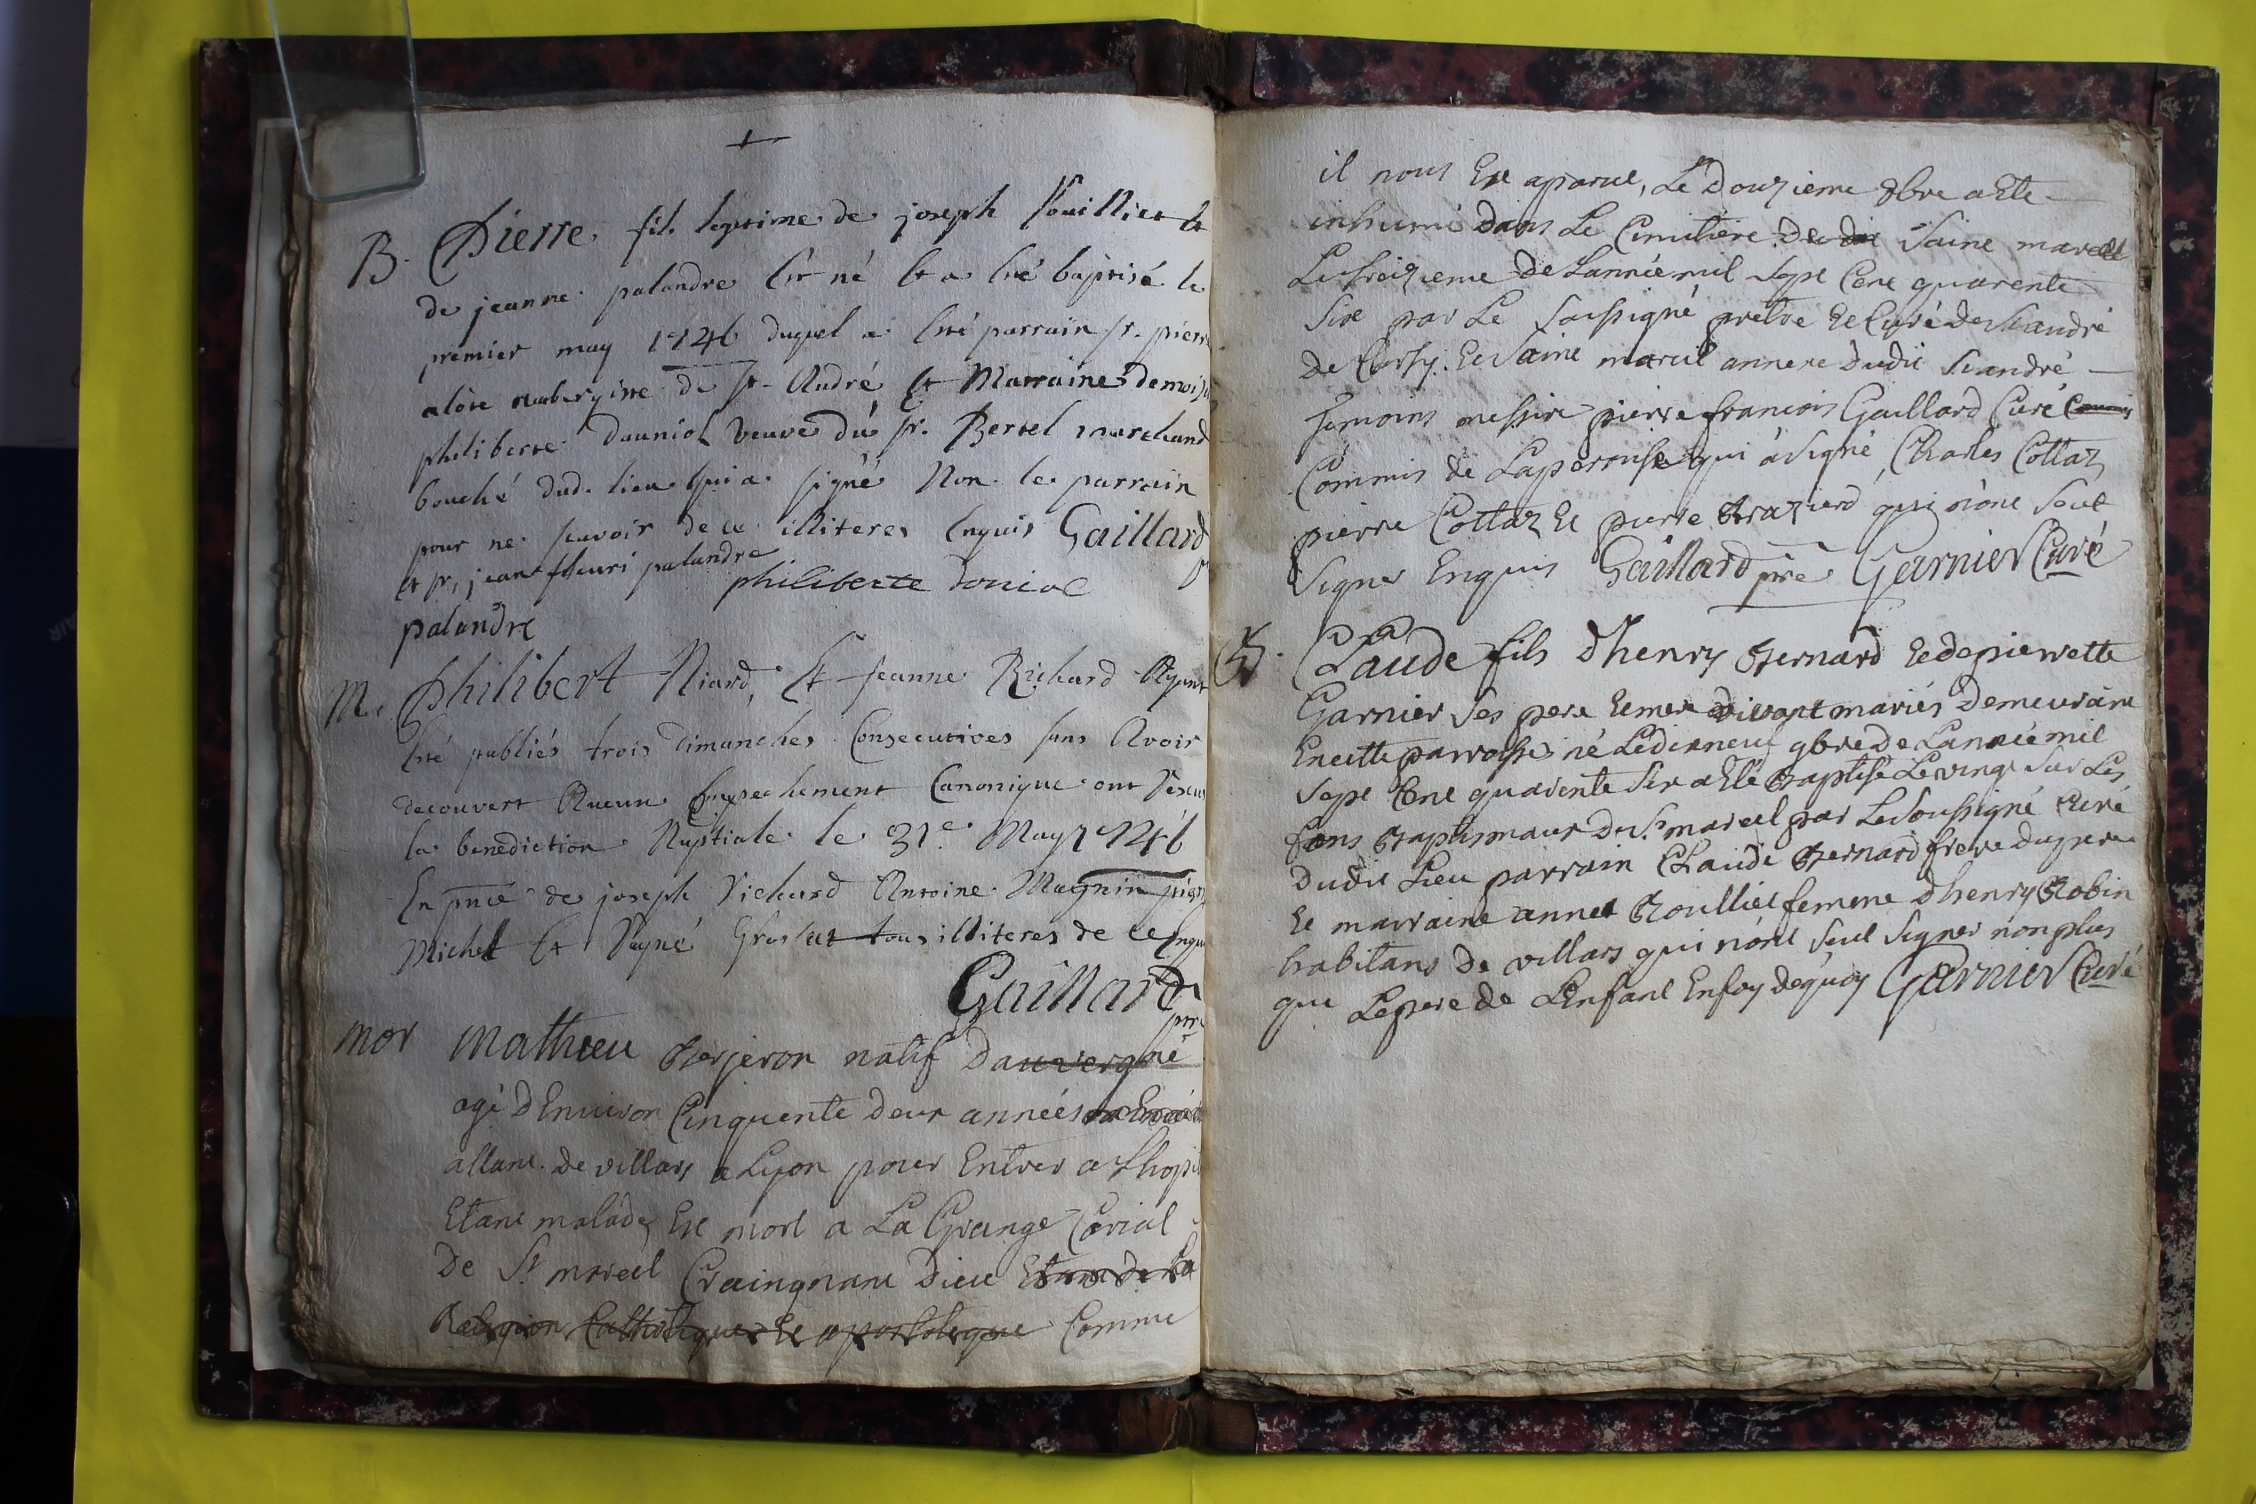 B. Pierre fil. legitime de joseph Pouilliet et
de jeanne palandre est né et a esté baptisé le
premier may 1746 duquel a esté parrain sr. pierre
alôte aubergiste de st. André et Marraine demois
philiberte Dauniol veuve du sr. Bertel marchand
bouché dud. lieu qui a signé Non le parrain
pour ne scavoir de ce illiteres enquis Gaillard
et sr, jean fleuri palandre
philiberte doniol
palandre
M. Philibert Niard, et Jeanne Richard Ayant
esté publiés trois dimanches Consecutives sans Avoir
decouvert Aucun Empechement Canonique ont receu
la benediction Nuptiale le 31e May 1746
En pnce de joseph Richard Antoine Magnin
Michel et tous illiteres de ce enquis
Gaillard
ptre
mor Mathieu Berjeron natif dauvergne
agé dEnviron Cinquente deux années
allant de villars a Lyon pour Entrer a Lhopi
Etant malade, Est mort a La Grange Corial
De St marcel Craingnant Dieu Etant de La
Religion Catholique Et apostolique Comme
il nous Est aparut, Le Douzieme 8bre a Ete
inhumé dans Le Cimitiere dudit Saint marcel
Le treizieme de Lannée mil sept Cent quarente
Six par Le soussigné prêtre Et Curé de St andré
de Corsy Et Saint marcel annexe dudit St andré
temoins messire pierre francois Gaillard Curé Commis
Commis de Laperouse qui a signé, Charles Cottaz
pierre Cottaz Et pierre Brazierd qui n'ont seut
Signer Enquis Gaillard ptre Garnier Curé
B. Claude fils d'henry Bernard Et de pierrette
Garnier Ses pere Et mere mariés Demeurant
En cette parroisse né Le dixneuf 9bre de Lannée mil
Sept Cent quarente Six a Eté Baptisé Le vingt Sur Les
fons Baptismaux du St marcel par Le Soussigné Curé
Dudit Lieu parrain Claude Bernard frere du pere
Et marraine annet Roulliet femme d'henry Robin
habitans de villars qui n'ont seut Signer non plus
que Le pere de L'Enfant En foy de quoy Garnier Curé